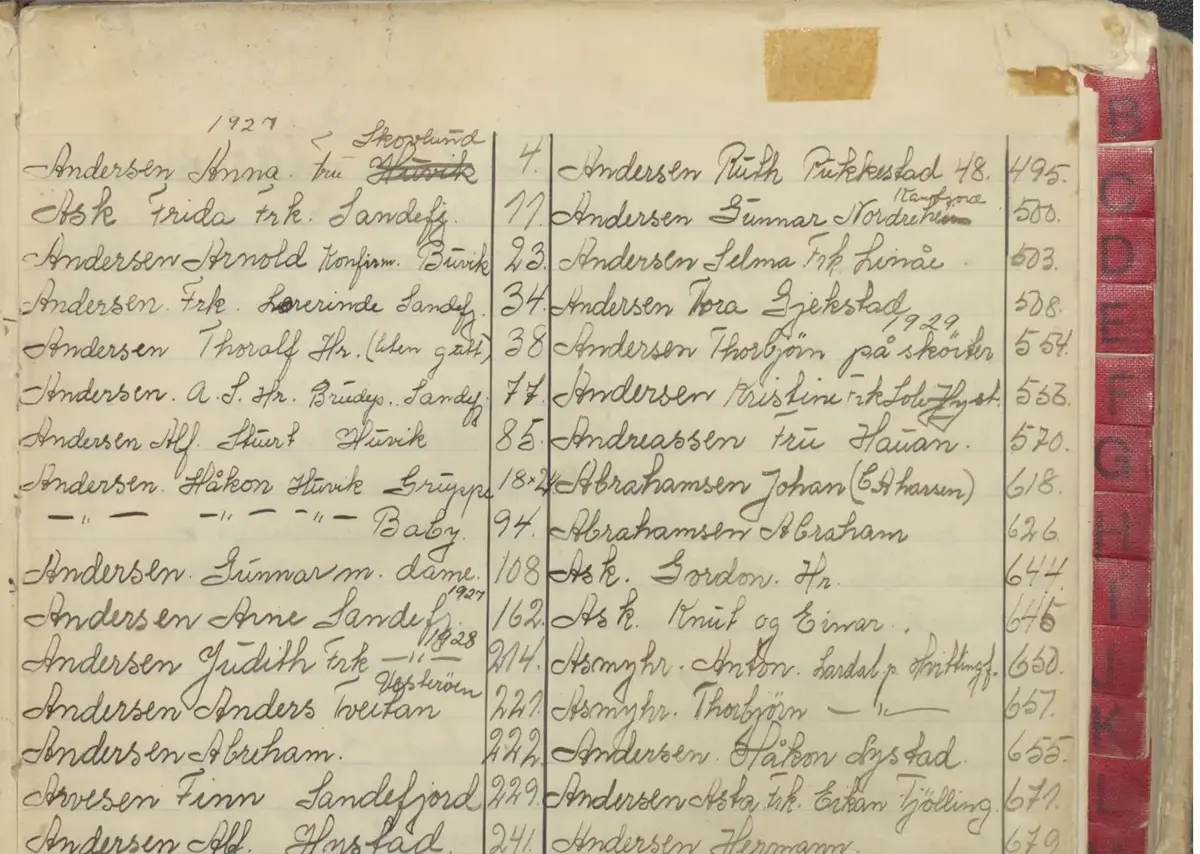 1927
< Skovlund
Andersen Anna. fru Huvik 4.
Ask Frida Frk. Sandefj. 11.
Andersen Arnold Konfirm. Buvik 23.
Andersen. Frk. Lærerinde Sandefj. 34.
Andersen Thoralf Hr. (liten gutt) 38
Andersen. A. S. Hr. Brudep. Sandefj. 77.
Andersen Alf. Sturt Huvik 85.
Andersen. Håkon Huvik Gruppe 18×24
— " — — " — — " — Baby. 94.
Andersen. Gunnar m. dame. 108
1927
Andersen Arne Sandefj. 162.
1928
Andersen Judith Frk — " — 214.
Vesterøen
Andersen Anders Tveitan 221.
Andersen Abreham. 222
Arvesen Finn Sandefjord 229.
Andersen Alf. Hystad. 241.
Andersen Ruth Pukkestad 48. 495.
Andersen Gunnar Nordreheim 500.
Andersen Selma Frk Linåe 503.
Andersen Tora Gjekstad 508.
1929
Andersen Thorbjörn på sköiter 554.
Andersen Kristine Frk Hyst. 556.
Andreassen Fru Hauan. 570.
Abrahamsen Johan 618.
Abrahamsen Abraham 626.
Ask. Gordon. Hr. 644.
Ask. Knut og Einar. 645
Asmyhr. Anton. Lardal p. Hvittingf. 650.
Asmyhr. Thorbjörn — " — 651.
Andersen. Håkon Nystad. 655.
Andersen Asta Frk. Eikan Tjölling. 671.
Andersen Hermann. 679
B
C
D
E
F
G
H
I
J
K
L